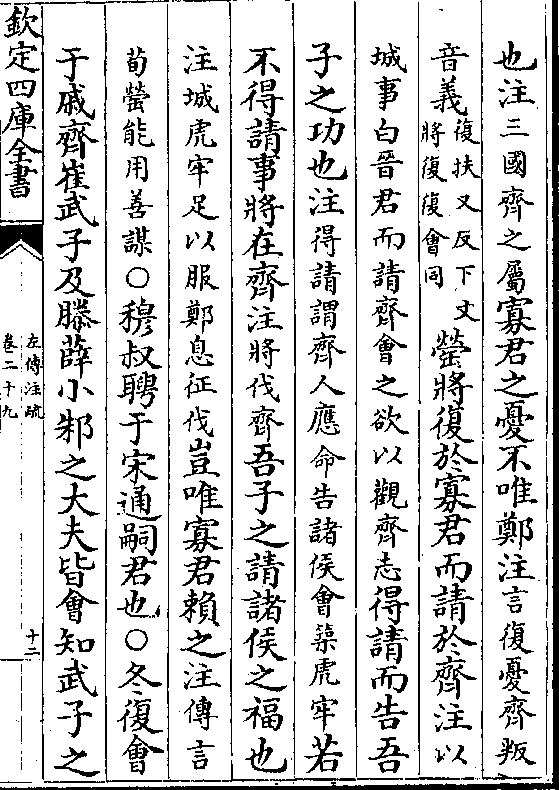 也注三國齊之屬寡君之憂不唯鄭注言復憂齊叛
音義復扶又反下文將復復會同罃將復於寡君而請於齊注以
城事白晉君而請齊會之欲以觀齊志得請而告吾
子之功也注得請謂齊人應命告諸侯會築虎牢若
不得請事將在齊注將伐齊吾子之請諸侯之福也
注城虎牢足以服鄭息征伐豈唯寡君賴之注傳言
荀罃能用善謀○穆叔聘于宋通嗣君也○冬復會
于戚齊崔武子及滕薛小邾之大夫皆會知武子之
欽定四庫全書
左傳注疏
卷二十九
十二